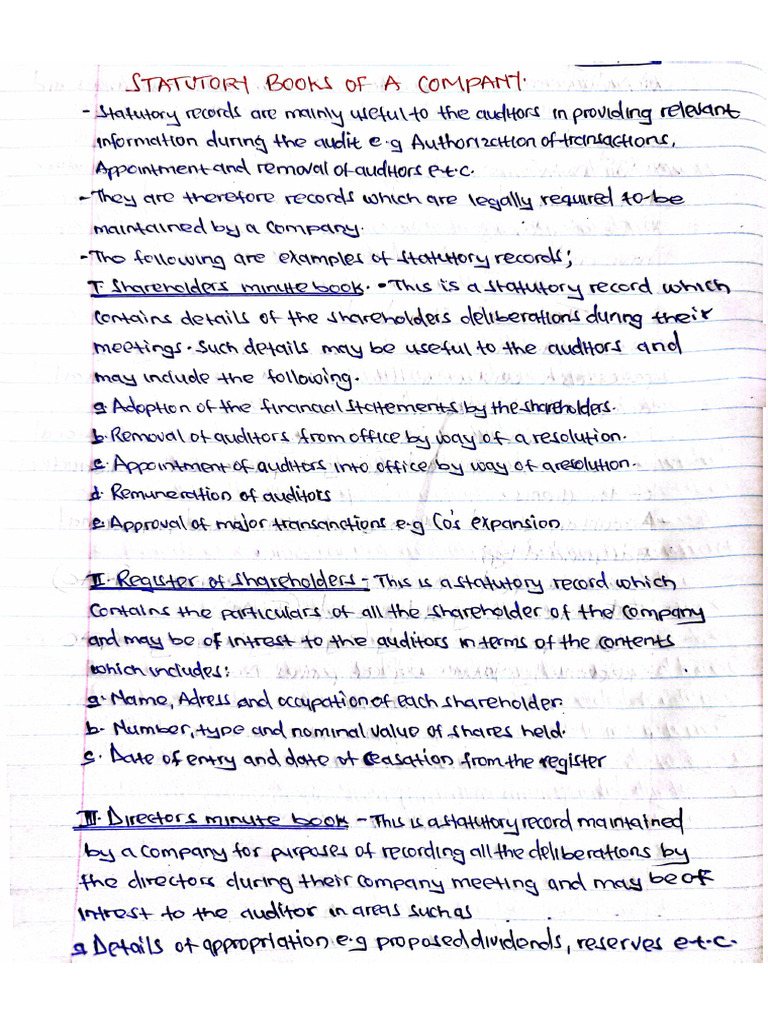 STATUTORY BOOKS OF A COMPANY.
- Statutory records are mainly useful to the auditors in providing relevant
information during the audit e.g Authorization of transactions,
Appointment and removal of auditors e.t.c.
- They are therefore records which are legally required to be
maintained by a company.
- The following are examples of statutory records;
I. Shareholders minute book. - This is a statutory record which
contains details of the shareholders deliberations during their
meetings. Such details may be useful to the auditors and
may include the following.
a. Adoption of the financial statements by the shareholders.
b. Removal of auditors from office by way of a resolution.
c. Appointment of auditors into office by way of a resolution.
d. Remuneration of auditors
e. Approval of major transanctions e.g Co's expansion
II. Register of shareholders - This is a statutory record which
contains the particulars of all the shareholder of the company
and may be of intrest to the auditors in terms of the contents
which includes:
a. Name, Adress and occupation of each shareholder.
b. Number, type and nominal value of shares held.
c. Date of entry and date of ceasation from the register
III. Directors minute book - This is a statutory record maintained
by a company for purposes of recording all the deliberations by
the directors during their company meeting and may be of
intrest to the auditor in areas such as
a. Details of appropriation e.g proposed dividends, reserves e.t.c.